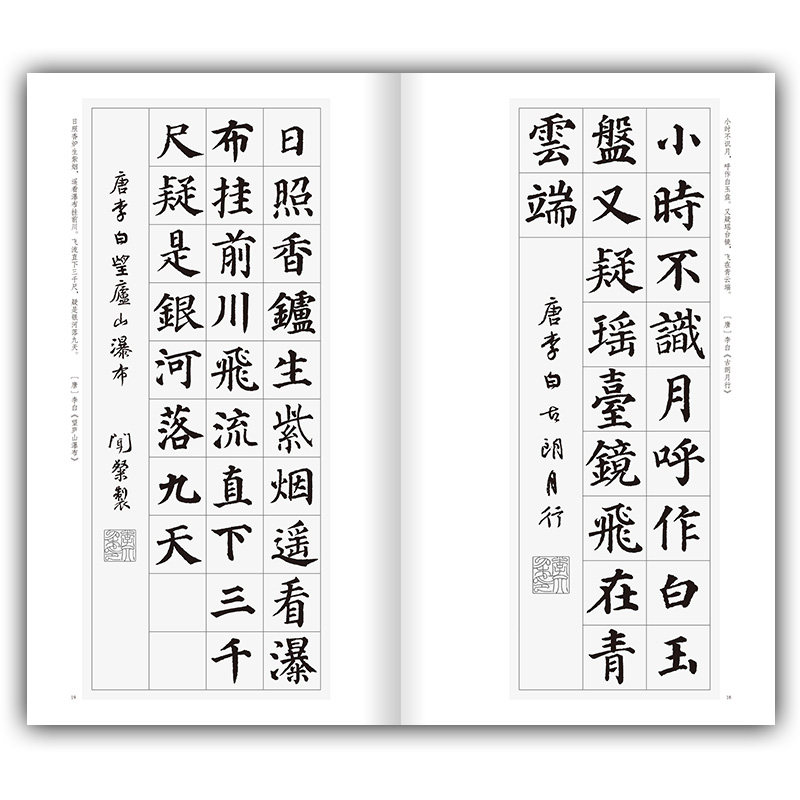 小时不识月，呼作白玉盘。又疑瑶台镜，飞在青云端。
［唐］李白《古朗月行》
小時不識月呼作白玉
盤又疑瑶臺鏡飛在青
雲端
唐李白古朗月行
18
日照香鑪生紫烟遥看瀑
布挂前川飛流直下三千
尺疑是銀河落九天
唐李白望廬山瀑布
製
日照香炉生紫烟，遥看瀑布挂前川。飞流直下三千尺，疑是银河落九天。
［唐］李白《望庐山瀑布》
19